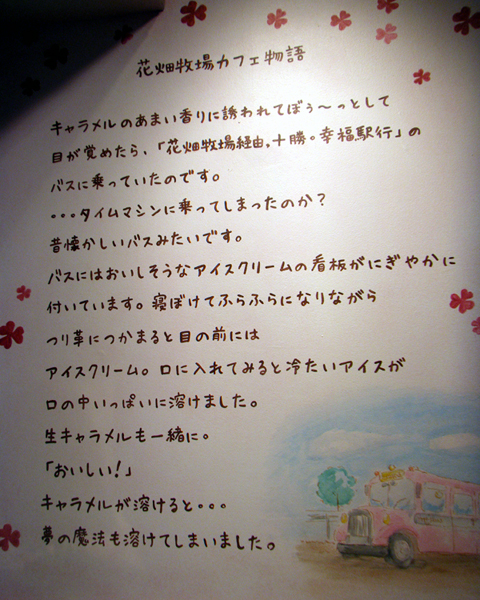 花畑牧場カフェ物語
キャラメルのあまい香りに誘われてぼぅ〜っとして
目が覚めたら、「花畑牧場経由。十勝。幸福駅行」の
バスに乗っていたのです。
・・・タイムマシンに乗ってしまったのか？
昔懐かしいバスみたいです。
バスにはおいしそうなアイスクリームの看板がにぎやかに
付いています。寝ぼけてふらふらになりながら
つり革につかまると目の前には
アイスクリーム。口に入れてみると冷たいアイスが
口の中いっぱいに溶けました。
生キャラメルも一緒に。
「おいしい！」
キャラメルが溶けると・・・
夢の魔法も溶けてしまいました。